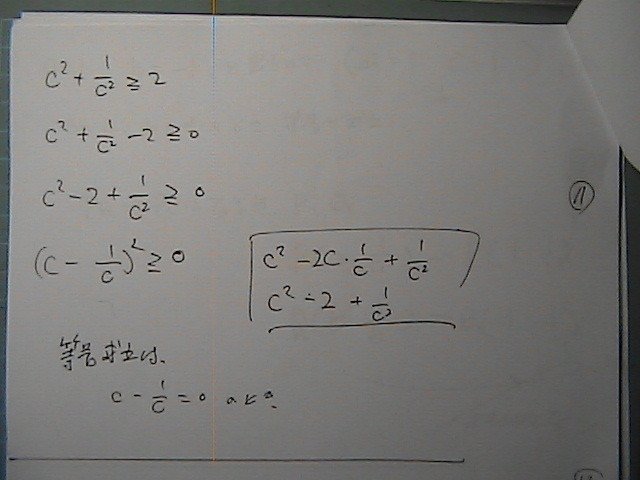 c² + 1/c² ≧ 2
c² + 1/c² - 2 ≧ 0
c² - 2 + 1/c² ≧ 0
⑪
(c - 1/c)² ≧ 0
c² - 2c · 1/c + 1/c²
c² - 2 + 1/c²
等号成立は、
c - 1/c = 0 のとき